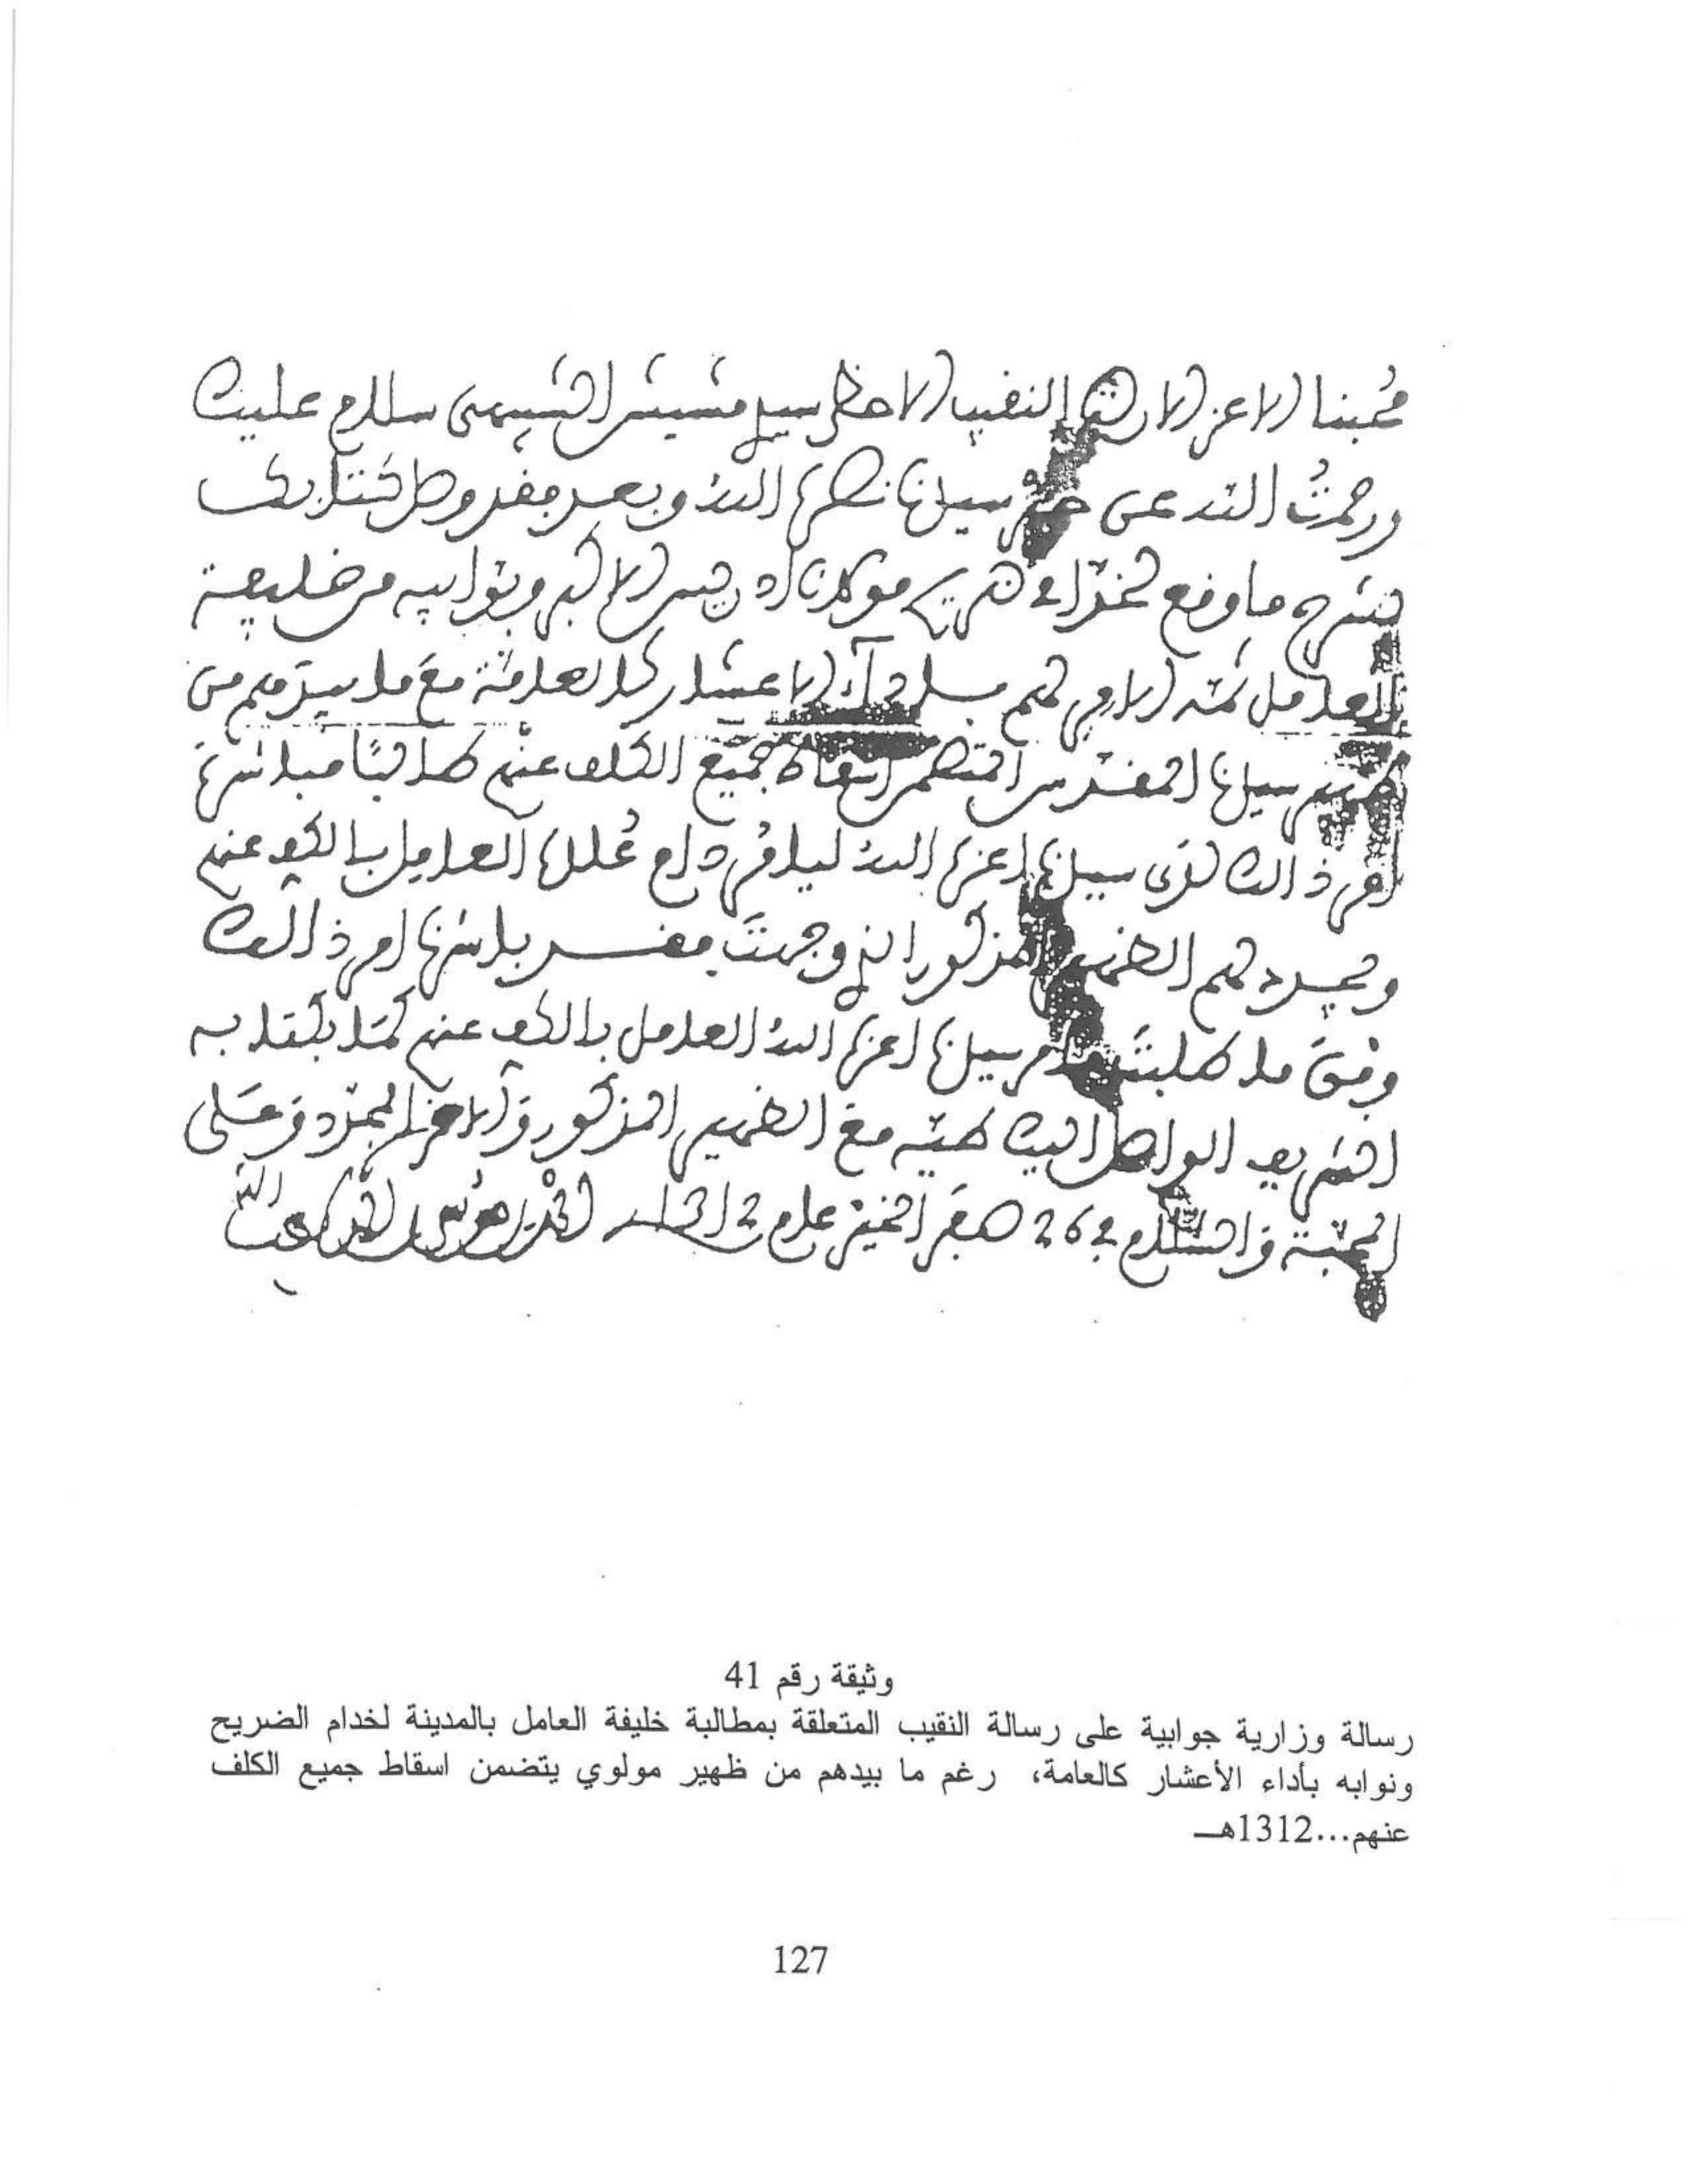 محبنا الاعز الارضى النقيب الاحظى سيدي مشيش الشبيهي سلام عليك
ورحمت الله عن خير سيدنا نصره الله وبعد فقد وصل كتابك
بشرح ما وقع لخدام ضريح مولانا ادريس الاكبر ونوابه من خليفة
العامل ثمه الامر لهم بادآء الاعشار كالعامة مع ما بيدهم من
ظهير سيدنا المقدس المتضمن اسقاط جميع الكلف عنهم طالبا مباشرة
امر ذالك لدى سيدنا اعزه الله ليامر دام علاه العامل بالكف عنهم
ويجدد لهم الظهير المذكور الذي وجهت فقد باشرنا امر ذالك
وفق ما طلبت وامر سيدنا اعزه الله العامل بالكف عنهم كما بكتابه
الشريف الواصل اليك طيه مع الظهير المذكور و المجدد وعلى
المحبة والسلام في 26 صفر الخير عام 1312 احمد بن موسى بن احمد لطف الله
وثيقة رقم 41
رسالة وزارية جوابية على رسالة النقيب المتعلقة بمطالبة خليفة العامل بالمدينة لخدام الضريح
ونوابه بأداء الأعشار كالعامة، رغم ما بيدهم من ظهير مولوي يتضمن اسقاط جميع الكلف
عنهم...1312هـ
127